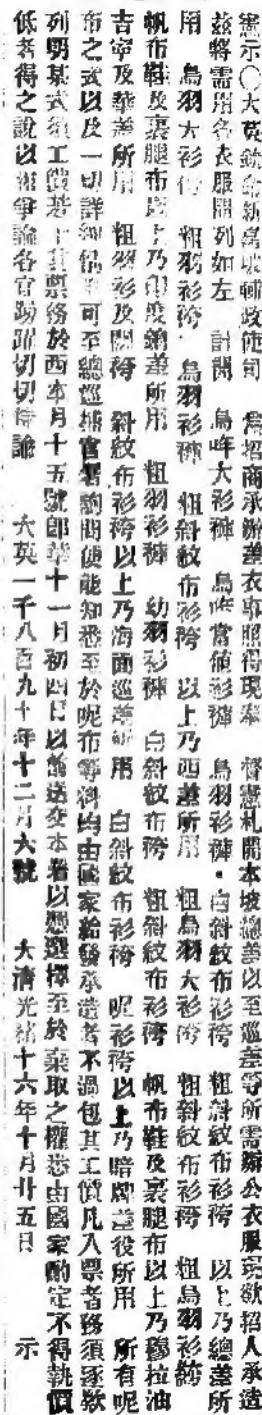 憲示〇大英欽命新嘉坡輔政使司　為招商承辦差衣事照得現奉　督憲札開本坡總差以至巡差等所需辦公衣服亟欲招人承造
茲將需用各衣服開列如左　計開　烏嗶大衫褲　烏嗶當值衫褲　烏羽衫褲・白斜紋布衫袴　粗斜紋布衫袴　以上乃總差所
用　烏羽大衫袴　粗羽衫袴　烏羽衫褲　粗斜紋布衫袴　以上乃西差所用　粗烏羽大衫袴　粗斜紋布衫袴　粗烏羽衫袴
帆布鞋及裹腿布以上乃印度籍差所用　粗羽衫褲　幼羽衫褲　白斜紋布袴　粗斜紋布衫袴　帆布鞋及裹腿布以上乃穆拉油
吉寧及華差所用　粗羽衫及闊袴　斜紋布衫袴以上乃海面巡差所用　白斜紋布衫袴　呢衫袴以上乃暗牌差役所用　所有呢
布之式以及一切詳細情形可至總巡捕官署詢問便能知悉至於呢布等料均由國家給發承造者不過包其工價凡入票者務須逐款
列明某式須工價若干其票務於西本月十五號即華十一月初四日以前送交本署以憑選擇至於棄取之權悉由國家酌定不得執價
低者得之說以相爭論各宜踴躍切切特諭　　大英一千八百九十年十二月六號　　大清光緒十六年十月廿五日　　示